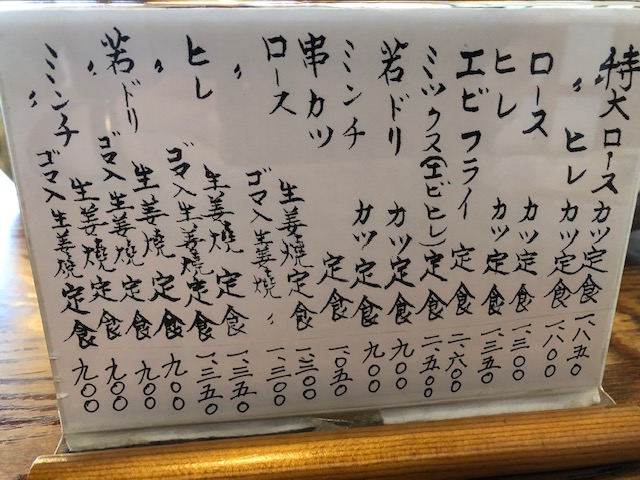 特大ロースカツ定食 一、八五〇
〃 ヒレカツ定食 一、八〇〇
ロースカツ定食 一、三〇〇
ヒレカツ定食 一、三五〇
エビフライ定食 二、六〇〇
ミックス(エビヒレ)定食 二、五〇〇
若ドリカツ定食 九〇〇
ミンチカツ定食 九〇〇
串カツ定食 一、〇五〇
ロース生姜焼定食 一、三〇〇
〃 ゴマ入生姜焼 〃 一、三〇〇
ヒレ生姜焼定食 一、三五〇
〃 ゴマ入生姜焼定食 一、三五〇
若ドリ生姜焼定食 九〇〇
〃 ゴマ入生姜焼定食 九〇〇
ミンチ生姜焼定食 九〇〇
〃 ゴマ入生姜焼定食 九〇〇